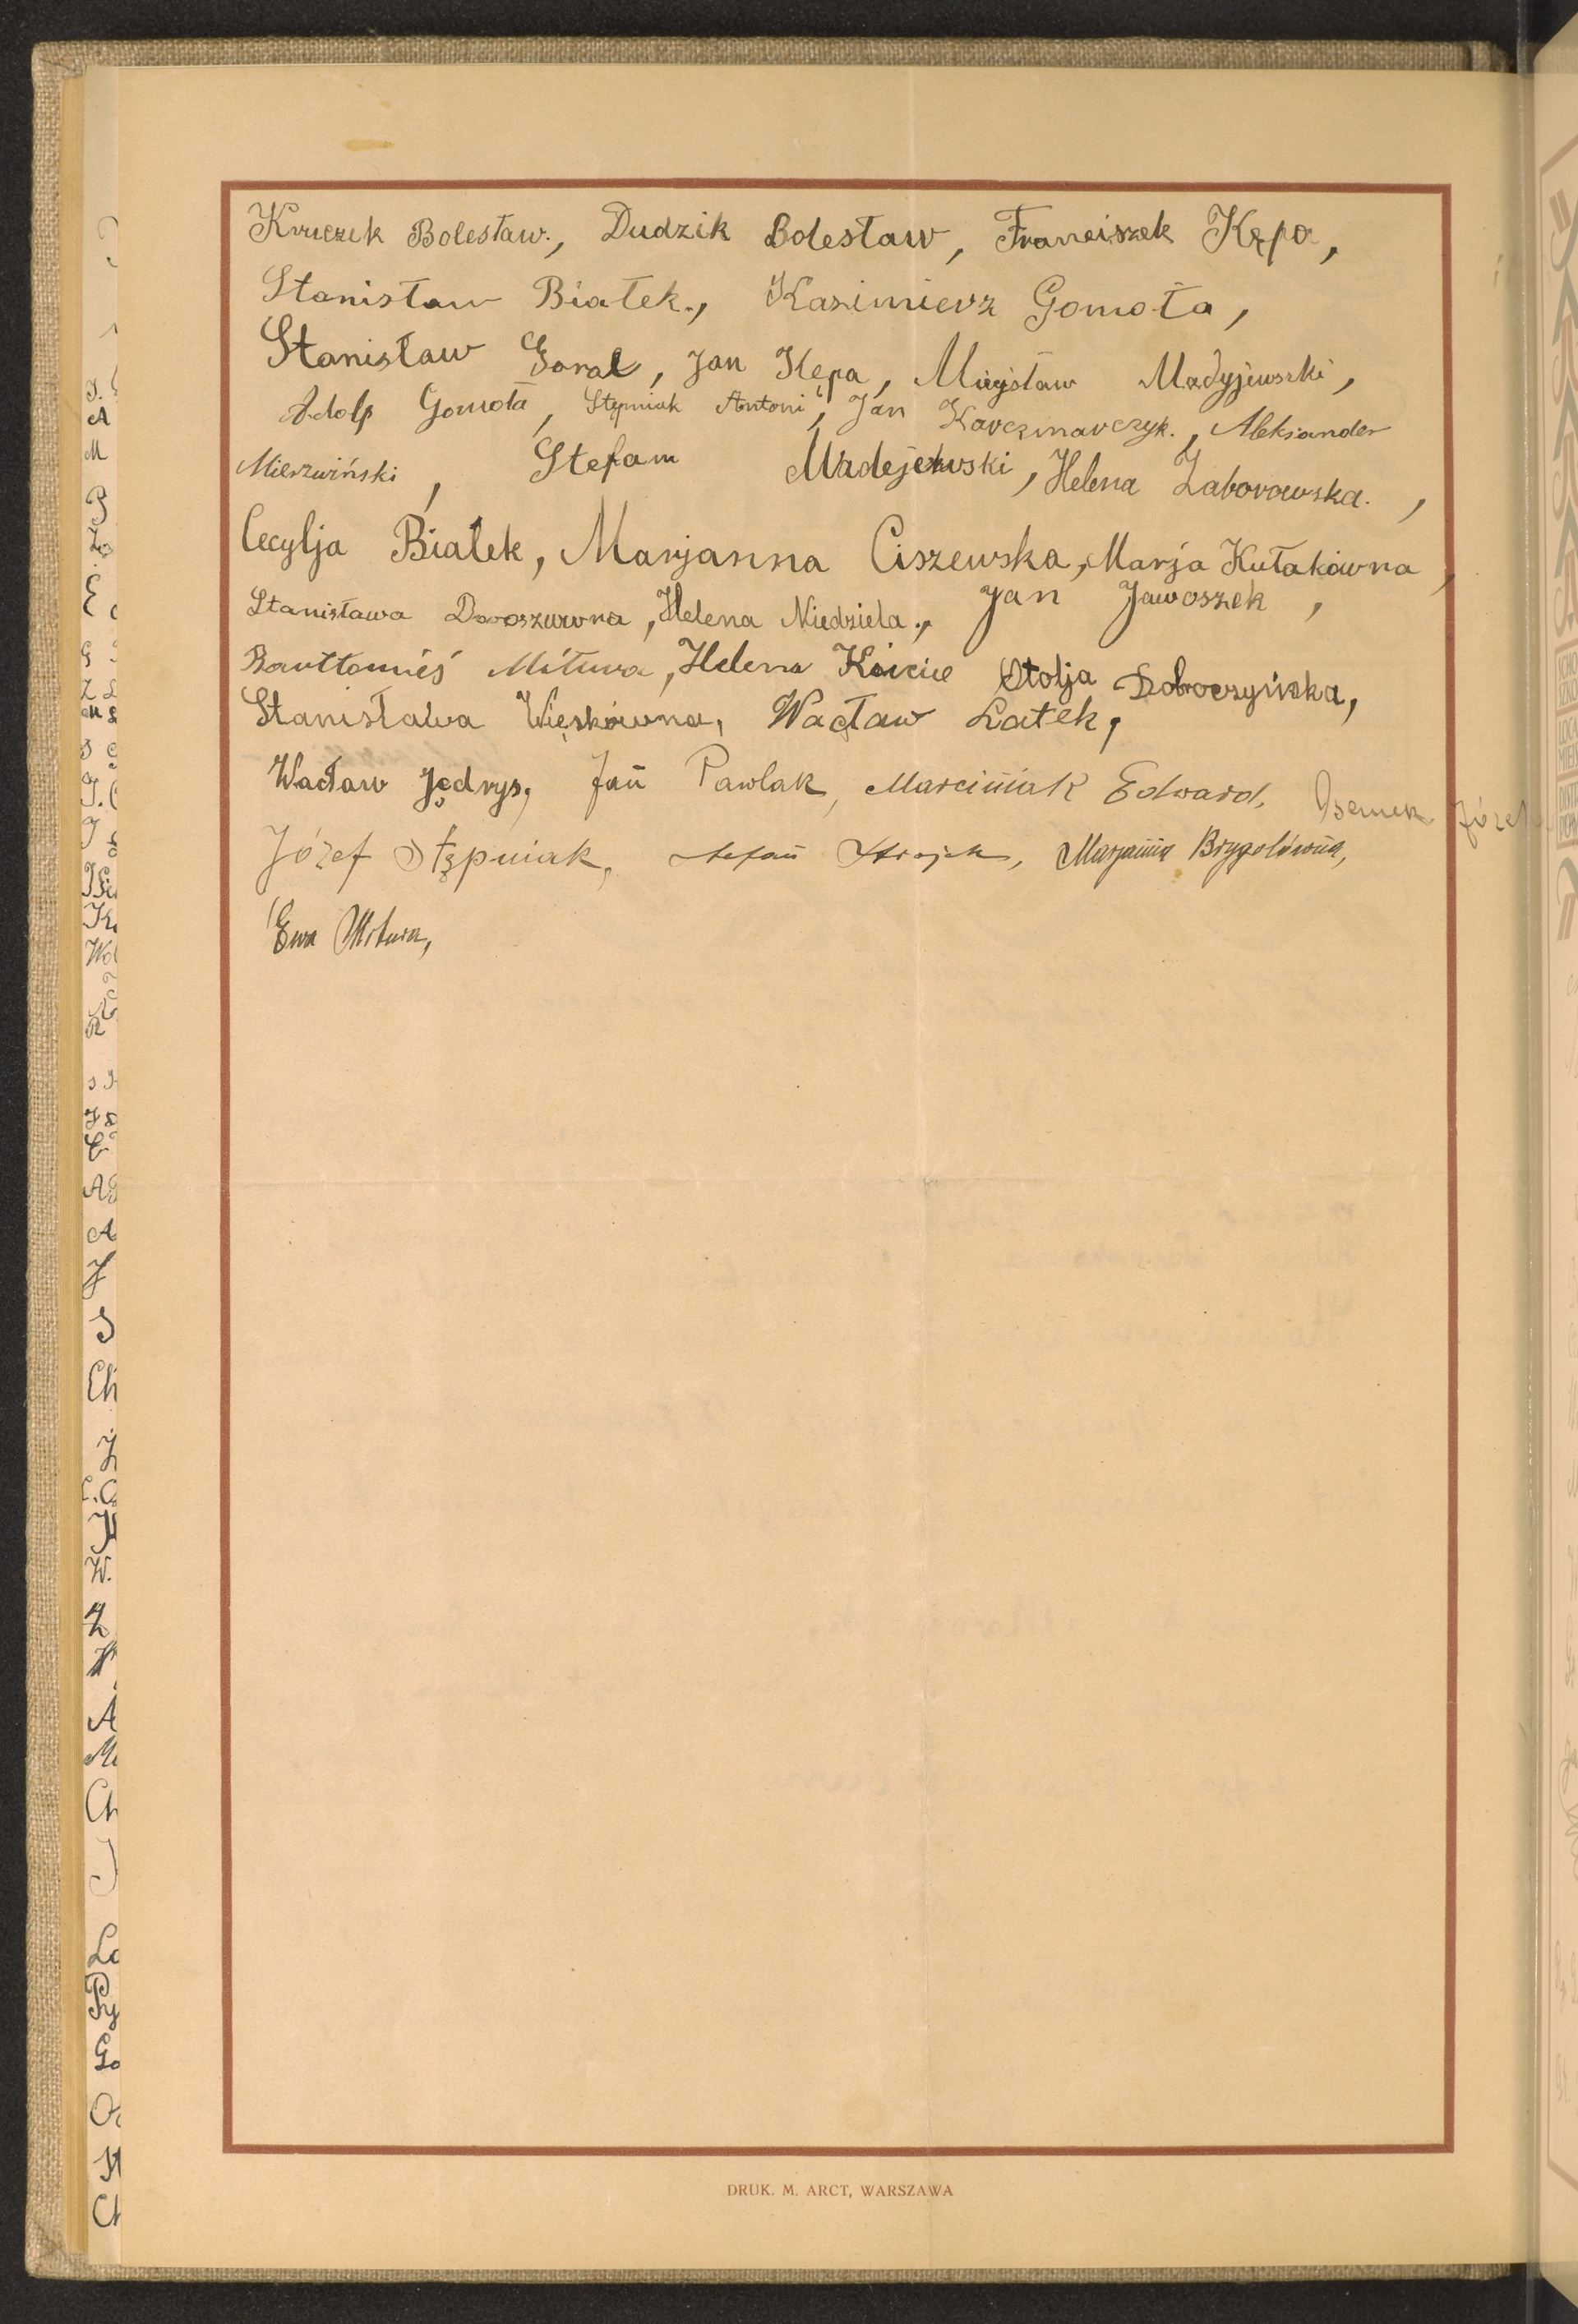 Kruczek Bolesław., Dudzik Bolesław, Franciszek Kępa,
Stanisław Białek., Kazimierz Gomoła,
Stanisław Goral, Jan Kępa, Madyjewski,
Adolf Gomoła, Stępniak Antoni, Jan Karczmarczyk., Aleksander
Mierzwiński, Stefam Madejewski, Helena Zaborowska.,
Cecylja Białek, Marjanna Ciszewska, Marja Kułakówna,
Stanisława Doroszurona, Helena Niedziela., Jan Jaworszek,
Mitura, Helena Stolja Doboczyńska,
Stanisława Więskówna, Wacław Latek,
Wacław Jędrys, Jan Pawlak, Marciniak Edward, Osemek Józef
Józef Stępniak, Stefan Marjanna Brygolówna,
Ewa Mitura,
DRUK. M. ARCT, WARSZAWA